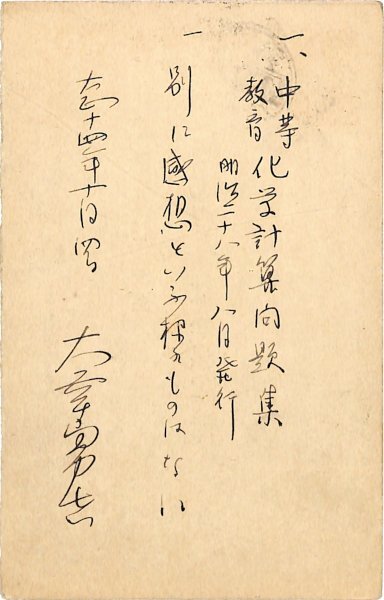 一、中等教育 化学計算問題集
明治二十八年八月発行
一 別に感想という様なものはなし
大正十四年十月四日
大幸勇吉